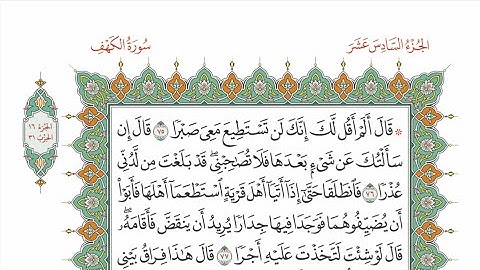 الجزء السادس عشر
سورة الكهف
الجزء ١٦
الحزب ٣١
۞ قَالَ أَلَمْ أَقُل لَّكَ إِنَّكَ لَن تَسْتَطِيعَ مَعِيَ صَبْرًا ٧٥ قَالَ إِن
سَأَلْتُكَ عَن شَيْءٍ بَعْدَهَا فَلَا تُصَٰحِبْنِي ۖ قَدْ بَلَغْتَ مِن لَّدُنِّي
عُذْرًا ٧٦ فَٱنطَلَقَا حَتَّىٰٓ إِذَآ أَتَيَآ أَهْلَ قَرْيَةٍ ٱسْتَطْعَمَآ أَهْلَهَا فَأَبَوْا۟
أَن يُضَيِّفُوهُمَا فَوَجَدَا فِيهَا جِدَارًا يُرِيدُ أَن يَنقَضَّ فَأَقَامَهُۥ ۖ
قَالَ لَوْ شِئْتَ لَتَّخَذْتَ عَلَيْهِ أَجْرًا ٧٧ قَالَ هَٰذَا فِرَاقُ بَيْنِي